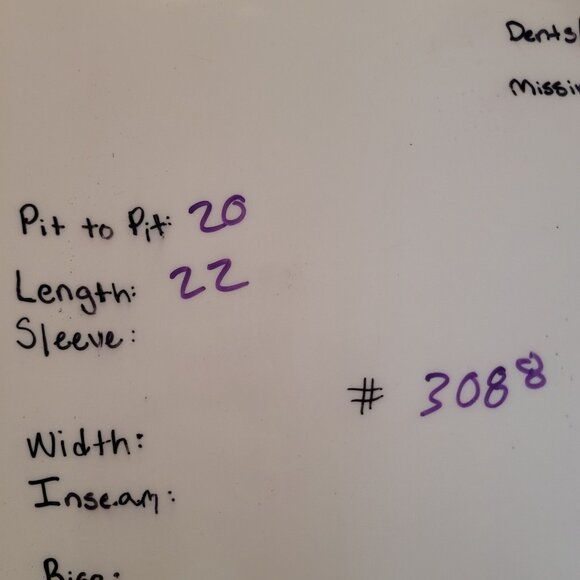 Dents
Pit to Pit: 20
Length: 22
Sleeve:
# 3088
Width:
Inseam:
Rise: